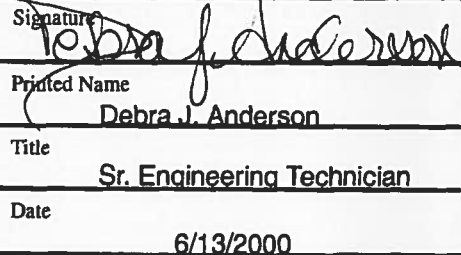 Signature
Debra J. Anderson
Printed Name
Debra J. Anderson
Title
Sr. Engineering Technician
Date
6/13/2000